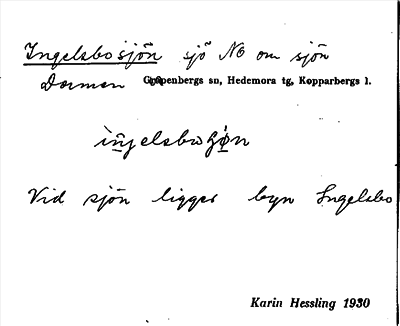 Ingelsbosjön sjö NO om sjön
Dormen Garpenbergs sn, Hedemora tg, Kopparbergs l.
Vid sjön ligger byn Ingelsbo
Karin Hessling 1930